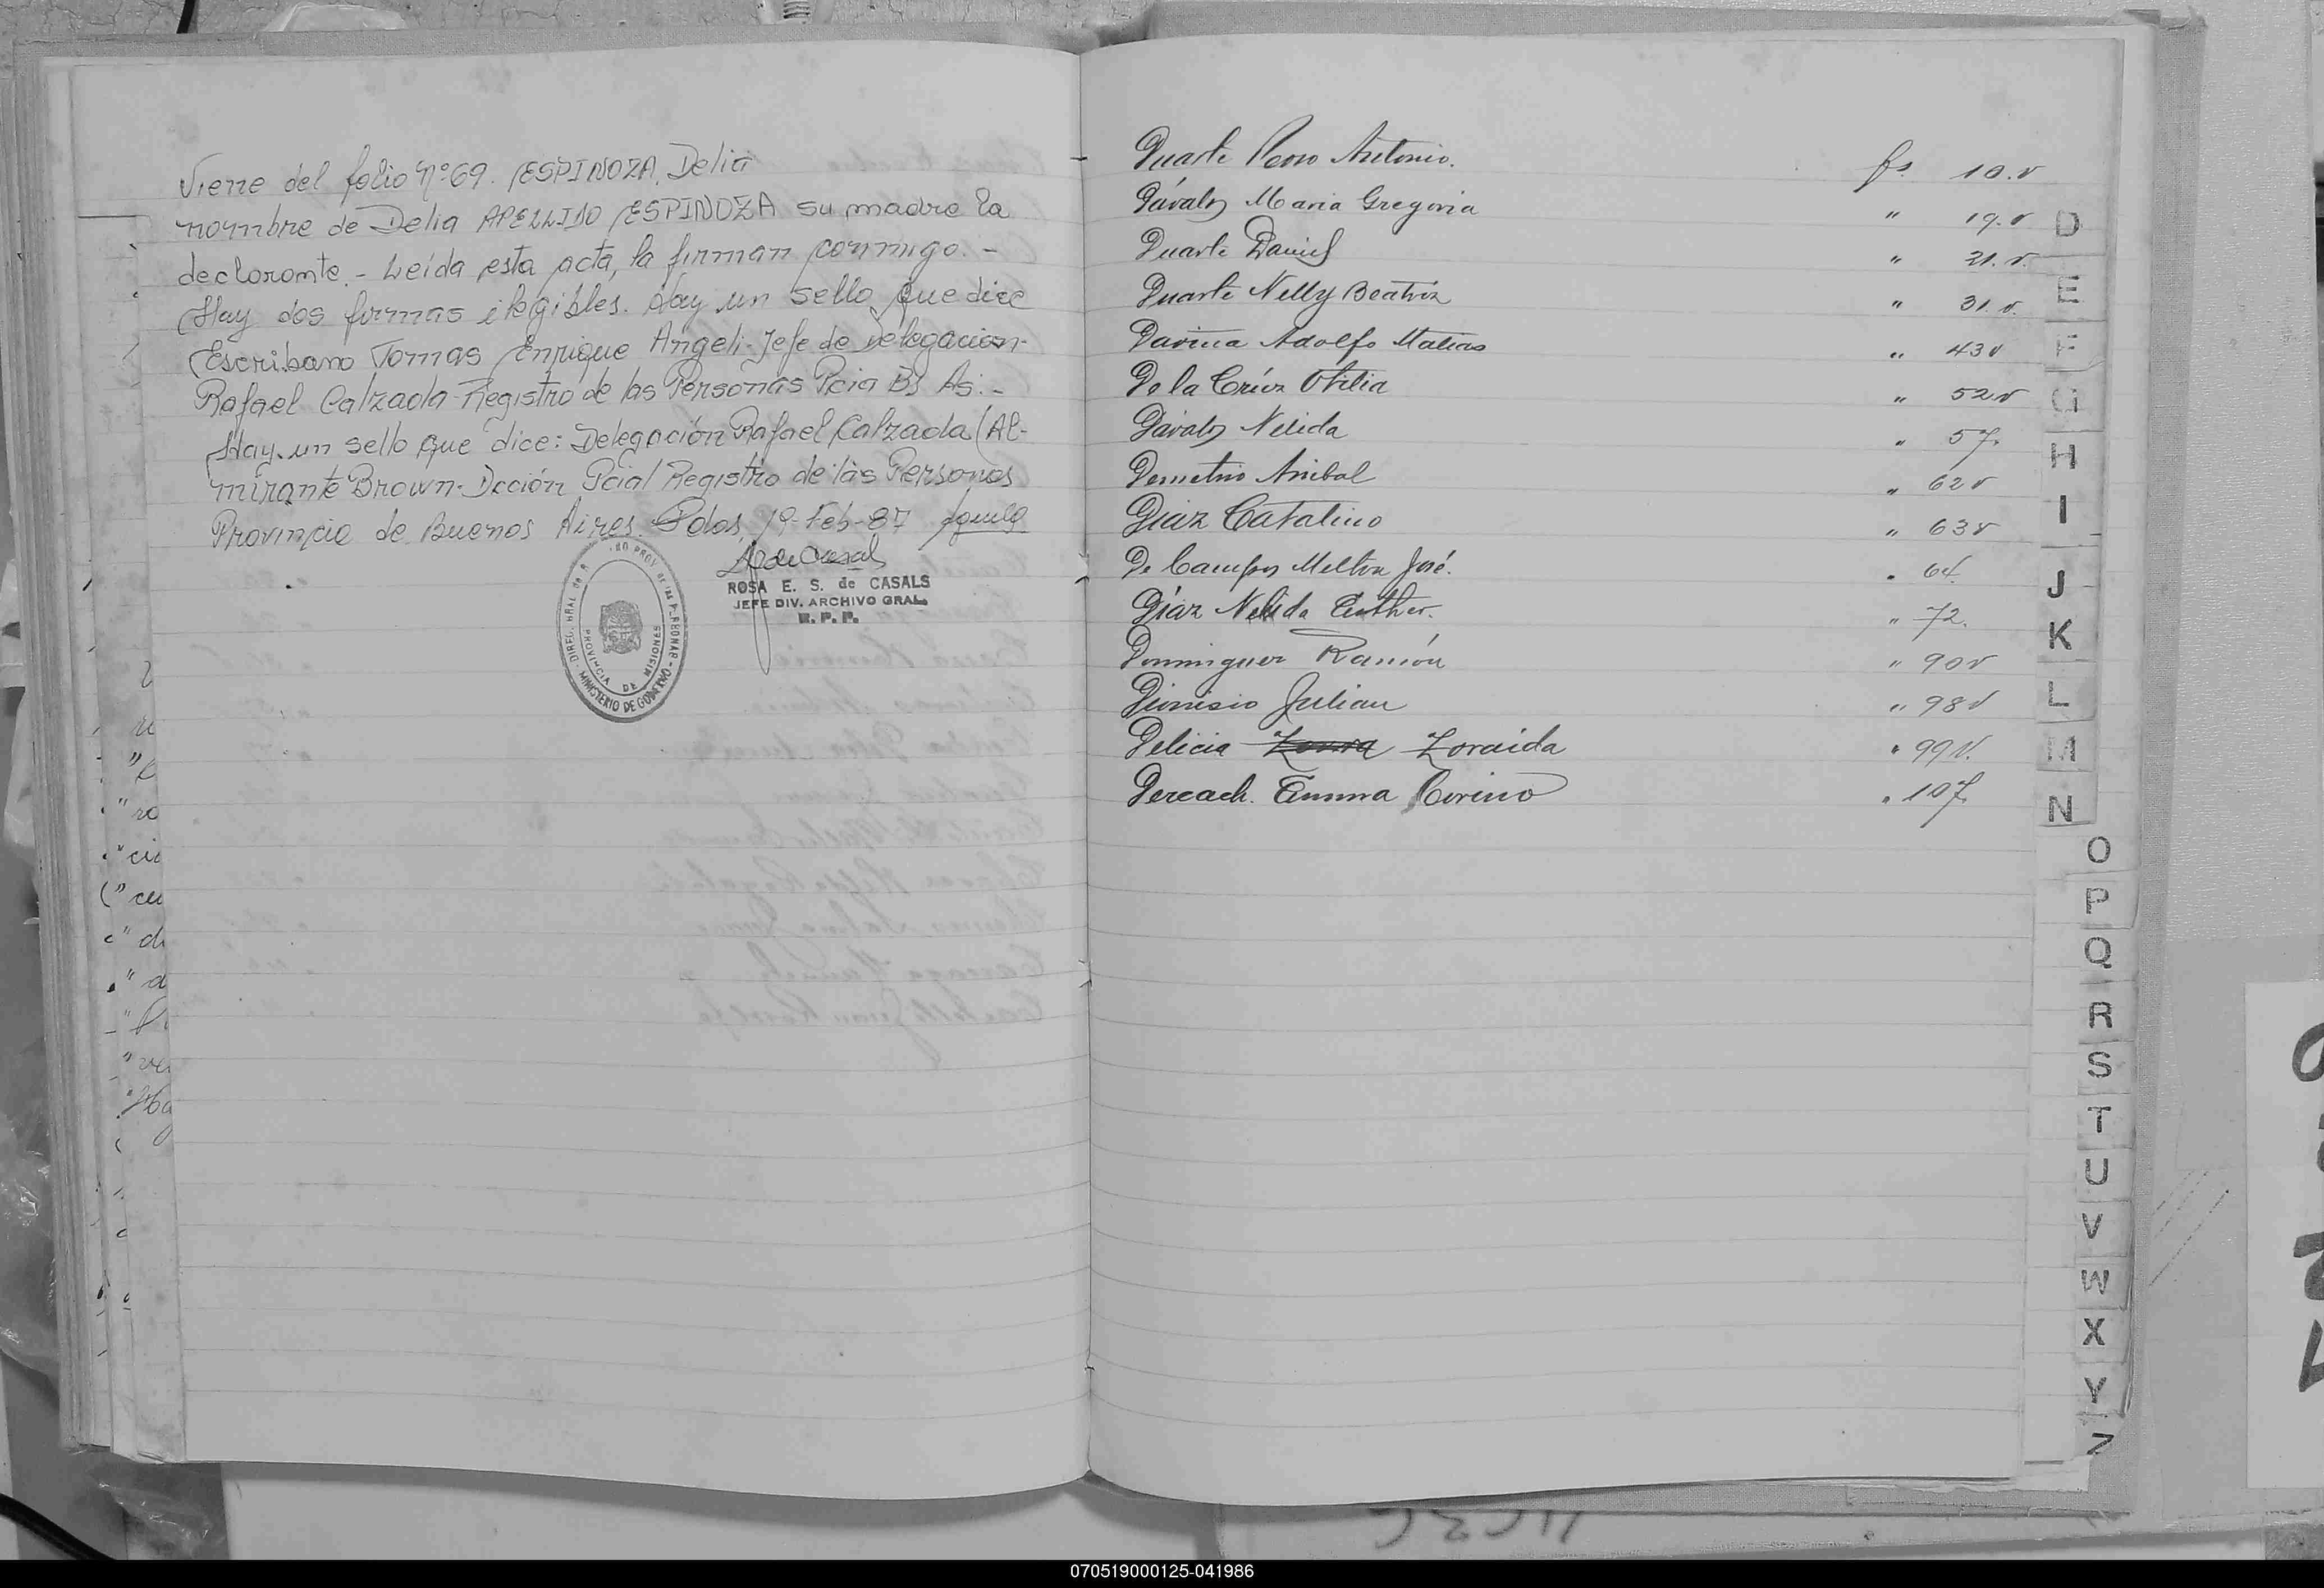 Viene del folio Nº 69. ESPINOZA, Delia
nombre de Delia APELLIDO ESPINOZA su madre la
declarante. - Leída esta acta, la firman conmigo. -
Hay dos firmas ilegibles. Hay un sello que dice
Escribano Tomas Enrique Angeli - Jefe de Delegacion -
Rafael Calzada - Registro de las Personas Pcia Bs As. -
Hay un sello que dice: Delegación Rafael Calzada (Al-
mirante Brown - Dcción Pcial Registro de las Personas
Provincia de Buenos Aires. Pdas, 19-Feb-87
ROSA E. S. de CASALS
JEFE DIV. ARCHIVO GRAL.
R. P. P.
MINISTERIO DE GOBIERNO
PROVINCIA DE MISIONES
Duarte Pedro Antonio. fs. 10.v
Dávalos Maria Gregoria " 19.v
Duarte Daniel " 21.v.
Duarte Nelly Beatriz " 31.v.
Davina Adolfo Matias " 43v
De la Crúz Otilia " 52v
Dávalos Nélida " 57.
Demetrio Anibal " 62v
Diaz Catalino " 63v
De Campos Melton José. " 64.
Díaz Nelida Esther. " 72.
Dominguez Ramón " 90v
Dionisio Julian " 98v
Delicia Zoraida " 99v.
Dereach. Emma " 107.
D
E
F
G
H
I
J
K
L
M
N
O
P
Q
R
S
T
U
V
W
X
Y
Z
070519000125-041986